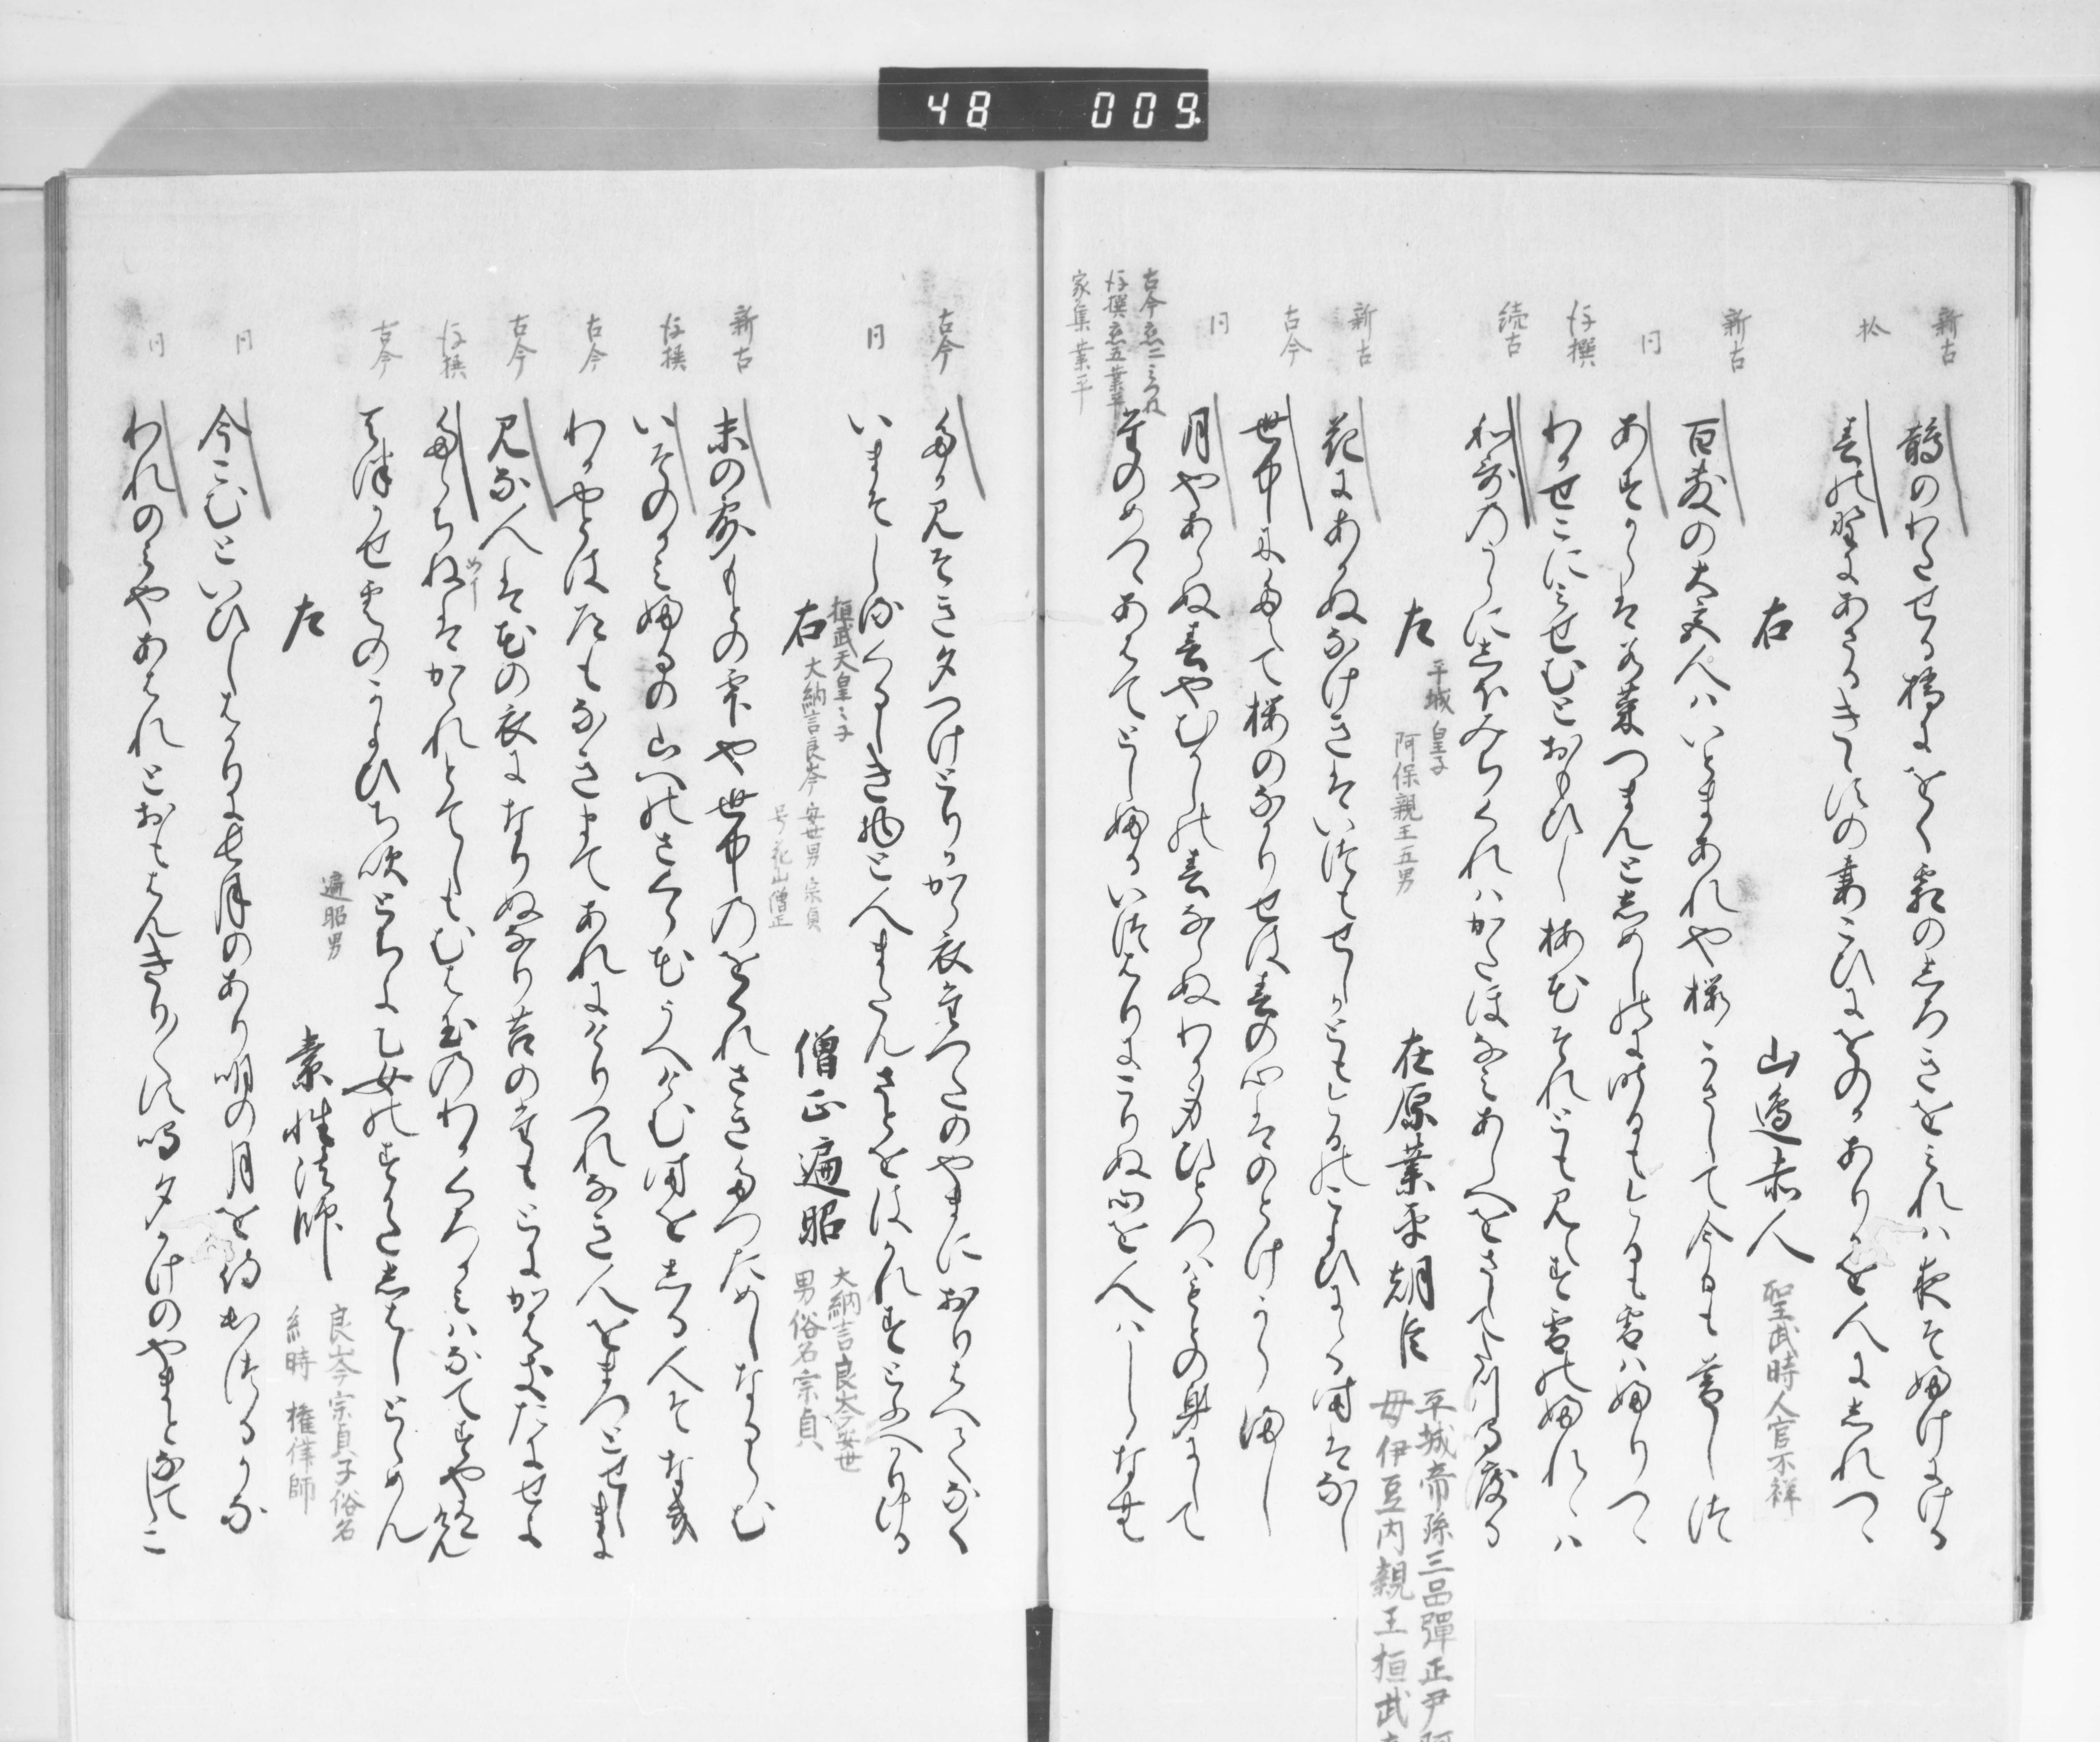 48 009
新古
鵲のわたせる橋にをく霜のしろきをみれは夜そふけにける
拾
春の野にあさるきゝすの妻こひにをのかありかを人にしれつゝ
右 山邊赤人 聖武時人官不祥
新古
百敷の大宮人はいとまあれや桜かさして今日も暮しつ
同
あすからは若菜つまんとしめし野に昨日もけふも雪はふりつゝ
後撰
わかせこにみせむとおもひし梅花それとも見えす雪のふれゝは
続古
和哥のうらにしほみちくれはかたほなみあしへをさして田つ鳴渡る
左 在原業平朝臣
平城皇子
阿保親王五男
平城帝孫三品彈正尹阿
母伊豆内親王桓武
新古
花にあかぬなけきはいつもせしかともけふのこよひにゝる時はなし
古今
世中にたえて桜のなかりせは春の心はのとけからまし
同
月やあらぬ春やむかしの春ならぬわか身ひとつはもとの身にして
古今恋二みつね
後撰恋五業平
家集業平
堂のめつゝあはてとしふるいつはりにこりぬ心を人はしらなむ
古今
たか見そき夕つけとりかから衣たつたのやまにおりはへてなく
同
いまそしるくるしき物と人またんさとをはかれすとふへかりける
右 僧正遍昭
桓武天皇之子
大納言良岑安世男宗貞
号花山僧正
大納言良岑安世
男俗名宗貞
新古
末の露もとの雫や世中のをくれさきたつためしなるらむ
後撰
いそのかみふるの山へのさくら花うへけむ時をしる人そなき
古今
わかやとは道もなきまてあれにけりつれなき人をまつとせしまに
古今
見な人は花の衣になりぬなり苔のたもとよかはきたにせよ
後撰
たらちねはかゝれとてしもむは玉のわかくろかみはなてすや有けん
めし
古今
天津かせ雲のかよひち吹とちよ乙女のすかたしはしとゝめん
左 素性法師
遍昭男
良岑宗貞子俗名
絃時 権律師
同
今こむといひしはかりに長月のあり明の月を待出つるかな
同
われのみやあはれとおもはんきり〳〵す鳴夕かけのやまとなてしこ